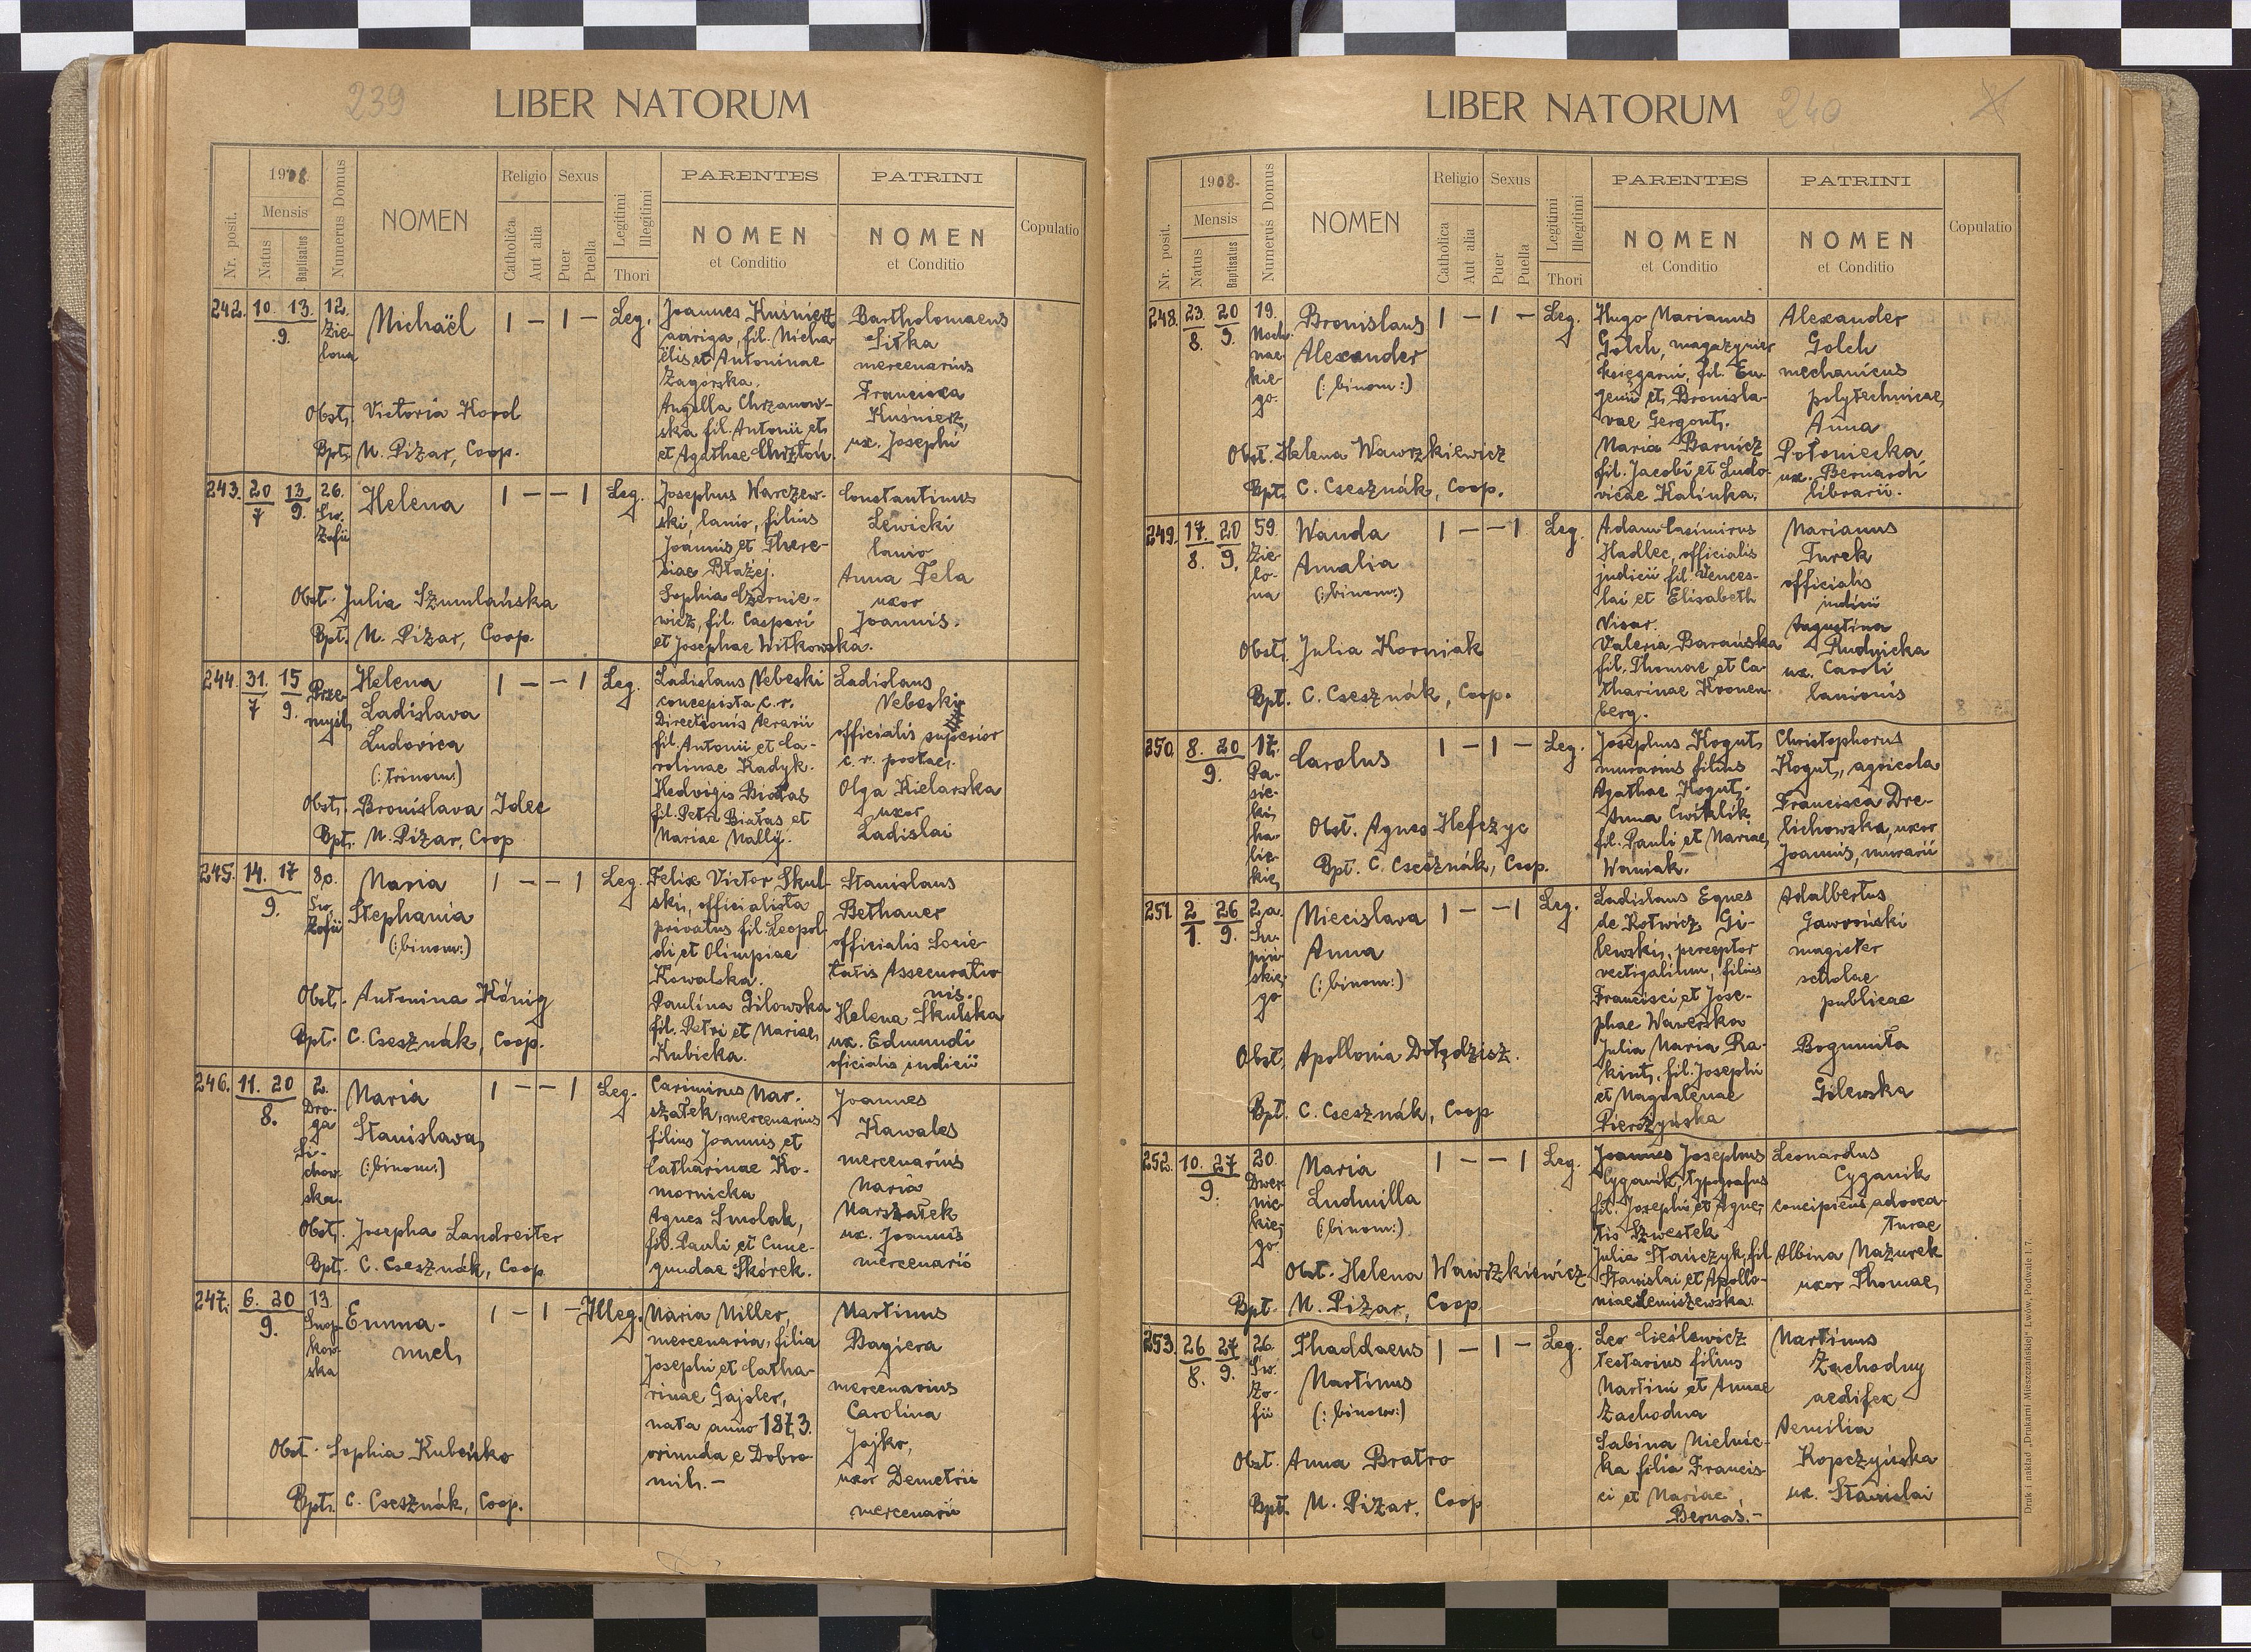 239
LIBER NATORUM
Nr. posit.
1908.
Mensis
Natus
Baptisatus
Numerus Domus
NOMEN
Religio
Catholica
Aut alia
Sexus
Puer
Puella
Legitimi
Illegitimi
Thori
PARENTES
NOMEN
et Conditio
PATRINI
NOMEN
et Conditio
Copulatio
242. 10. 13.
9.
12.
Zie-
lona
Michaël
1 — 1 — Leg.
Obst. Victoria Kord
Bpt. M. Piżar, Coop.
Joannes Kuśnierz
auriga, fil. Micha
ëlis et Antoninae
Zagórska.
Angella Chrzanow-
ska fil. Antonii et
et Agathae Chrztoń.
Bartholomaeus
Sitka
mercenarius
Francisca
Kuśnierz,
ux. Josephi
243. 20 13
7 9.
26.
Św.
Zofii
Helena
1 — — 1 Leg.
Obst. Julia Szumlańska
Bpt. M. Piżar, Coop.
Josephus Warczew-
ski, lanio, filius
Joannis et There-
siae Błażej.
Sophia Czernie-
wicz, fil. Caspari
et Josephae Witkowska.
Constantinus
Lewicki
lanio
Anna Fela
uxor
Joannis.
244. 31. 15
7 9.
Prze-
myśl,
Helena
Ladislava
Ludovica
(: trinom:)
1 — — 1 Leg.
Obst. Bronislava Idec
Bpt. M. Piżar, Coop
Ladislaus Nebeski
concepista c. r.
Directionis Aerarii
fil. Antonii et Ca-
rolinae Radyk.
Hedvigis Białas
fil. Petri Białas et
Mariae Mally.
Ladislaus
Nebeski
officialis superior
c. r. postae.
Olga Kielarska
uxor
Ladislai
245. 14. 17
9.
30.
Św.
Zofii
Maria
Stephania
(: binom:)
1 — — 1 Leg.
Obst. Antonina König
Bpt. C. Csesznák, Coop.
Felix Victor Skul-
ski, officialista
privatus fil. Leopol-
di et Olimpiae
Kowalska.
Paulina Gilowska
fil. Petri et Mariae
Kubicka.
Stanislaus
Bethauer
officialis Socie
tatis Assecuratio
nis.
Helena Skulska
ux. Edmundi
oficialis iudicii
246. 11. 20
8.
2.
Dro-
ga
Si-
chow-
ska.
Maria
Stanislava,
(: binom:)
1 — — 1 Leg.
Obst. Josepha Landreiter
Bpt. C. Csesznák, Coop
Casimirus Mar.
szałek, mercenarius
filius Joannis et
Catharinae Ko-
mornicka
Agnes Smolak,
fil. Pauli et Cune-
gundae Skórek.
Joannes
Kawales
mercenarius
Maria
Marszałek
ux. Joannis
mercenarii
247. 6. 20
9.
13.
Snop
kow-
ska
Emma-
nuel,
1 — 1 — Illeg.
Obst. Sophia Kubeńko
Bpt. C. Csesznák, Coop.
Maria Miller,
mercenaria, filia
Josephi et Catha-
rinae Gajsler,
nata anno 1873.
oriunda e Dobro
mil. —
Martinus
Bagiera
mercenarius
Carolina
Jajko,
uxor Demetrii
mercenarii
LIBER NATORUM
240
Nr. posit.
1908.
Mensis
Natus
Baptisatus
Numerus Domus
NOMEN
Religio
Catholica
Aut alia
Sexus
Puer
Puella
Legitimi
Illegitimi
Thori
PARENTES
NOMEN
et Conditio
PATRINI
NOMEN
et Conditio
Copulatio
248. 23. 20
8. 9.
19.
Moch
nac-
kie-
go.
Bronislaus
Alexander
(: binom:)
1 — 1 — Leg.
Obst. Helena Wawrzkiewicz
Bpt. C. Csesznák, Coop.
Hugo Marianus
Golch, magazynier
księgarni, fil. Eu-
genii et Bronisla-
vae Gergont.
Maria Barnicz
fil. Jacobi et Ludo-
vicae Kalinka.
Alexander
Golch
mechanicus
polytechnicae,
Anna
Połoniecka
ux. Bernardi
librarii.
249. 17. 20
8. 9.
59.
Zie-
lo-
na
Wanda
Amalia
(: binom:)
1 — — 1 Leg.
Obst. Julia Korniak
Bpt. C. Csesznák, Coop.
Adam Casimirus
Hadlec, officialis
judicii fil. Vences-
lai et Elisabeth
Visar.
Valeria Barańska
fil. Thomae et Ca-
tharinae Kronen-
berg.
Marianus
Turek
officialis
iudicii
Augustina
Rudnicka
ux. Caroli
lanionis
250. 8. 20
9.
17.
Pa-
sie-
ki,
ha-
lic-
kie,
Carolus
1 — 1 — Leg.
Obst. Agnes Hefczyc
Bpt. C. Csesznák, Coop.
Josephus Kogut,
murarius filius
Agathae Kogut.
Anna Cwiklik
fil. Pauli et Mariae,
Waniak.
Christophorus
Kogut, agricola
Francisca Dre-
lichowska, uxor
Joannis, murarii
251. 2 26
1. 9.
2a.
Su-
piń-
skie-
go
Miecislava
Anna
(: binom:)
1 — — 1 Leg.
Obst. Apollonia Dołędzisz.
Bpt. C. Csesznák, Coop
Ladislaus Eques
de Rotwicz Gi-
lewski, perceptor
vectigalium, filius
Francisci et Jose-
phae Wawerska
Julia Maria Ra-
kint, fil. Josephi
et Magdalenae
Pierzyńska
Adalbertus
Gawroński
magister
scholae
publicae
Bogumiła
Gilewska
252. 10. 27
9.
20.
Dwer-
nic-
kie-
go
Maria
Ludmilla
(: binom:)
1 — — 1 Leg.
Obst. Helena Wawrzkiewicz
Bpt. M. Piżar, Coop
Joannes Josephus
Cyganik, typografus
fil. Josephi et Agne-
tis Szwestek
Julia Stańczyk, fil
Stanislai et Apollo-
niae Lemiszewska.
Leonardus
Cyganik
concipiens advoca-
turae
Albina Mazurek
uxor Thomae,
253. 26 27
8. 9.
26.
Św.
Zo-
fii
Thaddaeus
Martinus
(: binom:)
1 — 1 — Leg.
Obst. Anna Bratro
Bpt. M. Piżar. Coop
Leo Cieślewicz
testarius filius
Martini et Annae
Zachodna
Sabina Mielnic-
ka filia Francis-
ci et Mariae
Bernas. —
Martinus
Zachodny
aedifex
Aemilia
Kopczyńska
ux. Stanislai
Druk i nakład „Drukarni Mieszczańskiej" Lwów, Podwale l. 7.